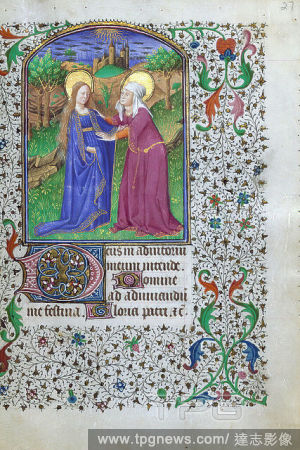 27
Deus in adiutoriu
meum intende.
Domine
ad adiuuandu
me festina. Gloria patri. &c.
TPG
www.tpgnews.com／達志影像